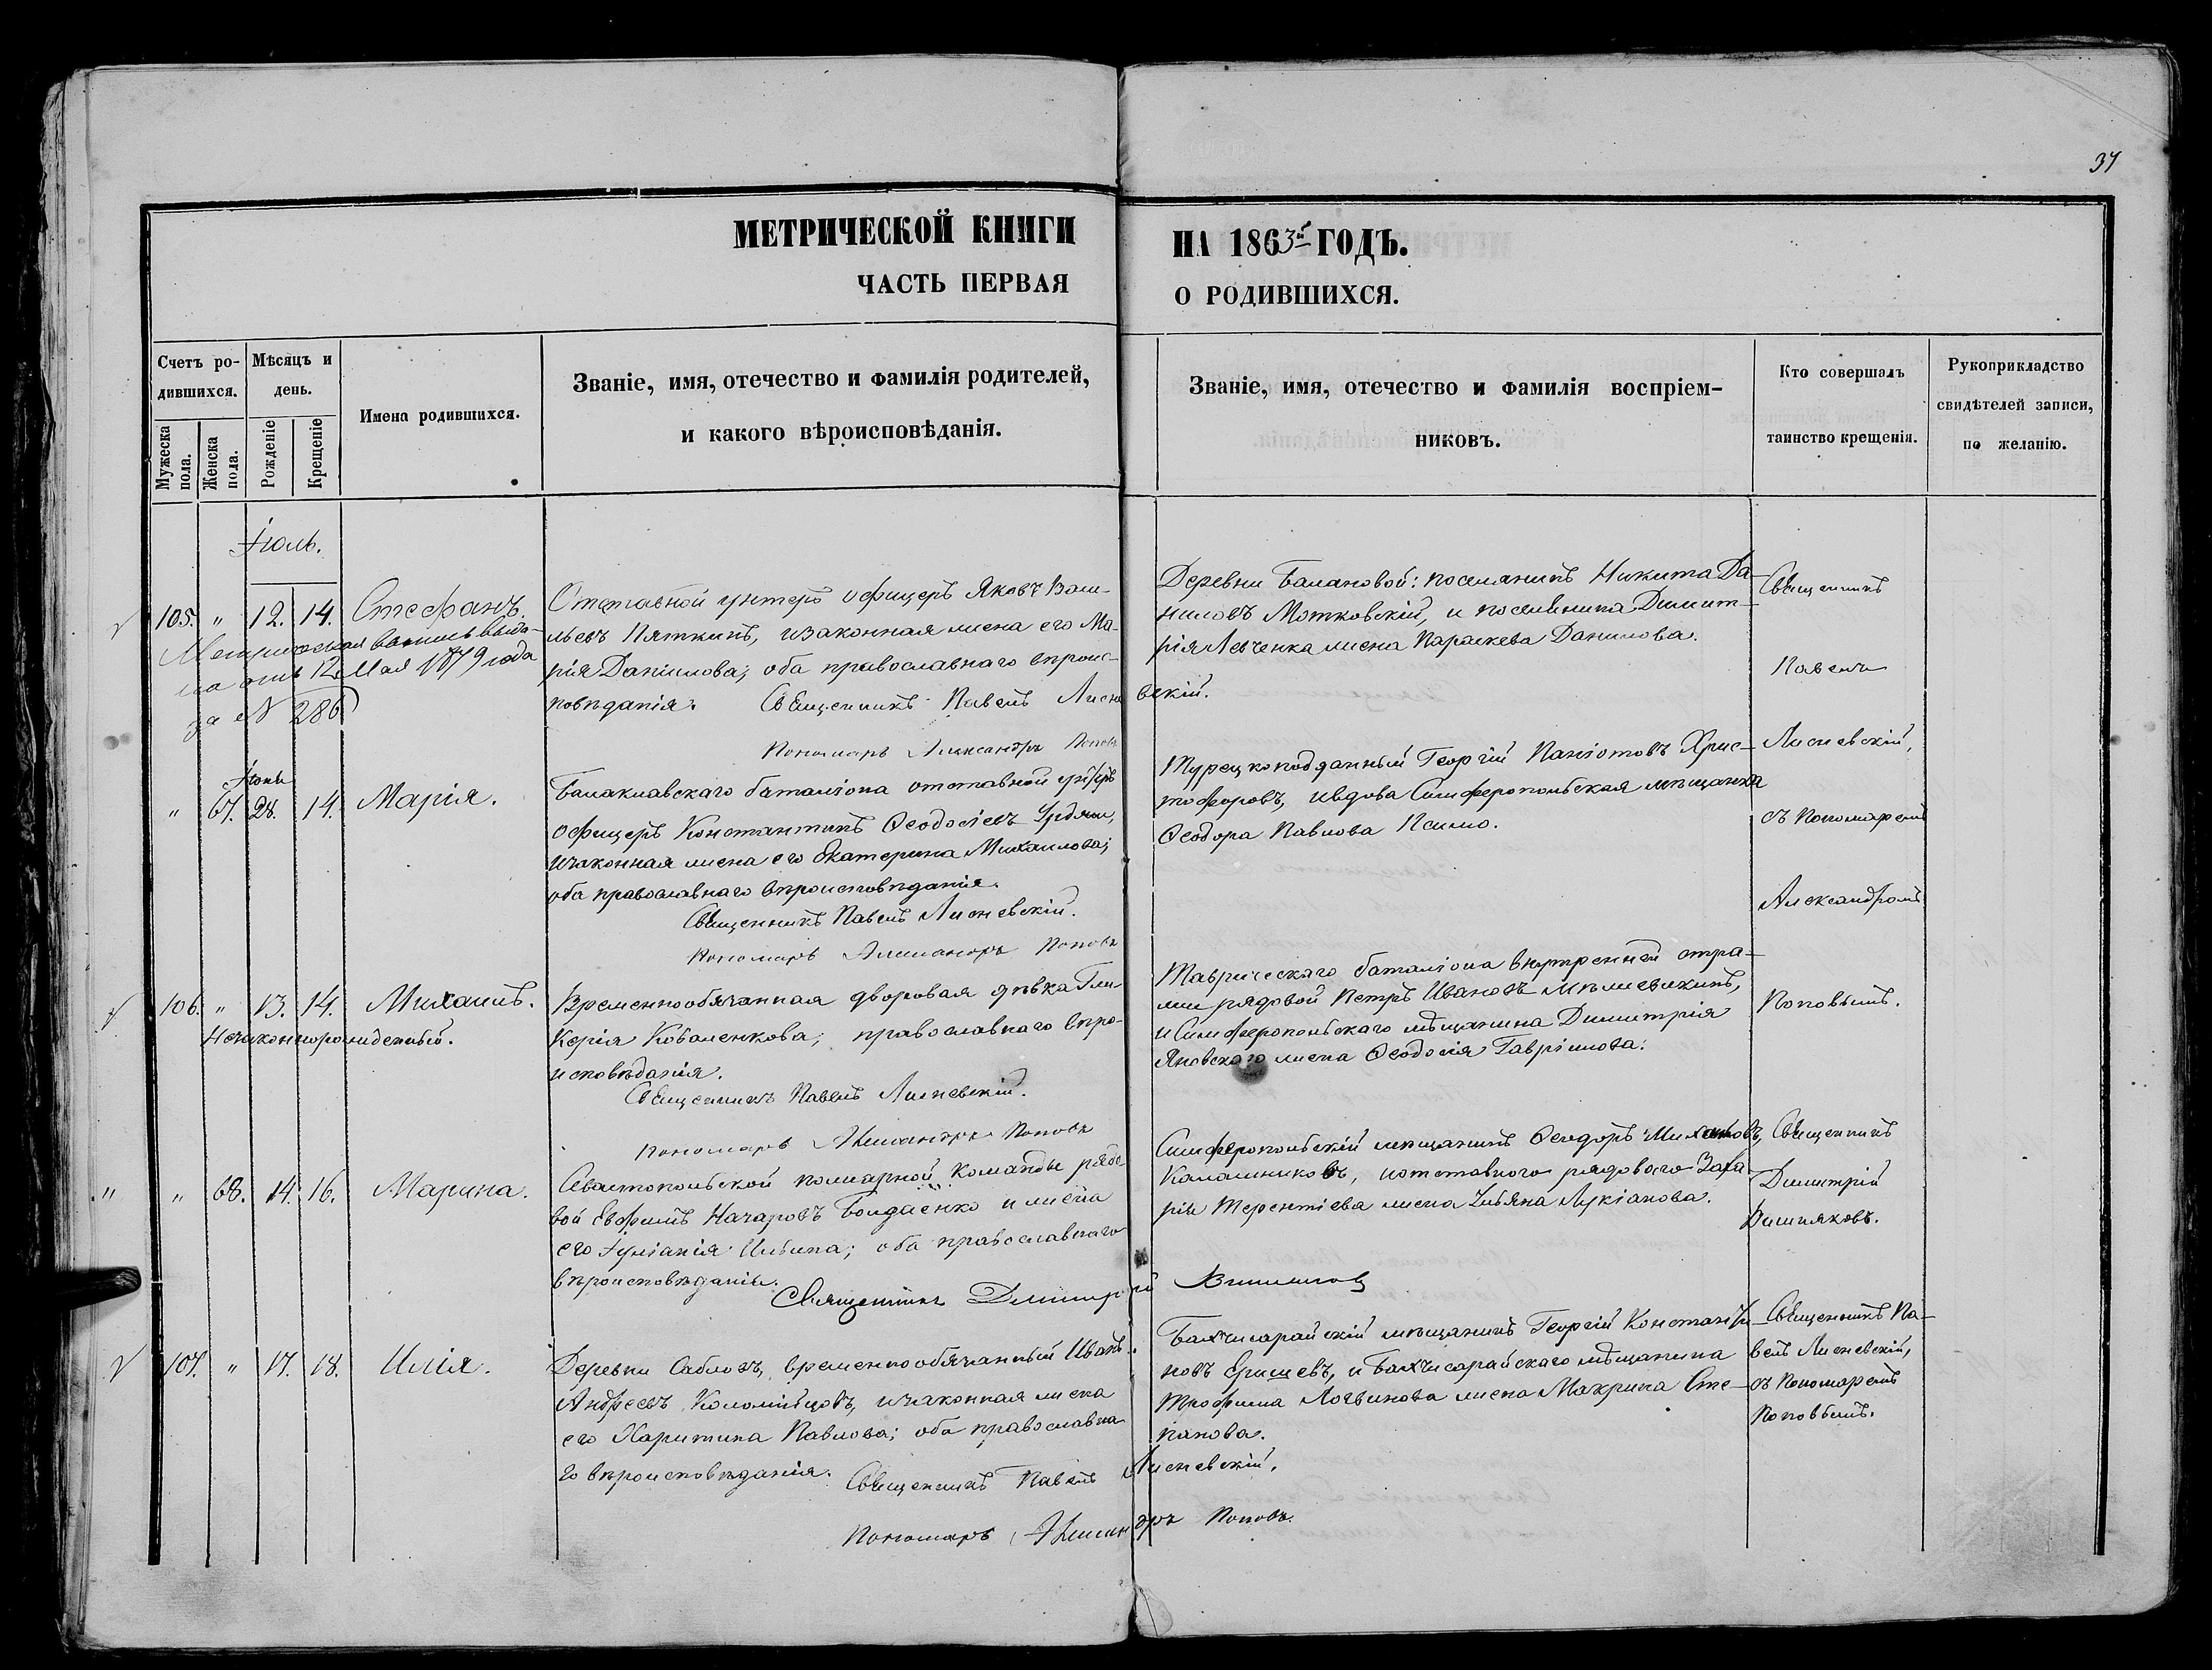 37
МЕТРИЧЕСКОЙ КНИГИ
НА 1863й ГОДЪ.
ЧАСТЬ ПЕРВАЯ
О РОДИВШИХСЯ.
Счетъ ро-
дившихся.
Мужеска пола.
Женска пола.
Мѣсяцъ и
день.
Рожденіе
Крещеніе
Имена родившихся.
Званіе, имя, отечество и фамилія родителей,
и какого вѣроисповѣданія.
Званіе, имя, отечество и фамилія воспріем-
никовъ.
Кто совершалъ
таинство крещенія.
Рукоприкладство
свидѣтелей записи,
по желанію.
Іюль.
105. " 12. 14. Стефанъ.
Метрическая выпись выда-
на 12 Мая 1879 года
за № 286
Отставной унтеръ офицеръ Яковъ Васи-
льевъ Пяткинъ, изаконная жена его Ма-
рія Даніилова; оба православнаго вѣроис-
повѣданія. Священникъ Павелъ Лисневскій.
Пономарь Александръ Поповъ
Деревни Балановой: поселянинъ Никита Да-
ниловъ Мотковскій, и поселянина Димит-
рія Левченка жена Параскева Данилова.
Священникъ
Павелъ
Лисневскій,
съ Пономаремъ
Александромъ
Поповымъ.
Іюнь
" 67. 28. 14. Марія.
Балаклавскаго баталіона отставной унтеръ
офицеръ Константинъ Ѳеодосіевъ
изаконная жена его Екатерина Михаилова;
оба православнаго вѣроисповѣданія.
Священникъ Павелъ Лисневскій.
Пономарь Александръ Поповъ
Турецкоподданный Георгій Паніотовъ Хрис-
тофоровъ, ивдова Симферопольская мѣщанка
Ѳеодора Павлова Псимо.
106. " 13. 14. Михаилъ.
Незаконнорожденный.
Временнообязанная дворовая дѣвка Гли-
керія Коваленкова; православнаго вѣро-
исповѣданія.
Священникъ Павелъ Лисневскій.
Пономарь Александръ Поповъ
Таврическаго баталіона внутренней стра-
жи рядовой Петръ Ивановъ
и Симферопольскаго мѣщанина Димитрія
Яновскаго жена Ѳеодосія Гавріилова.
" " 68. 14. 16. Марина.
Севастопольской пожарной команды рядо
вой Евфимъ Назаровъ Болдаенко и жена
его Іуліанія Ильина; оба православнаго
вѣроисповѣданія.
Священникъ Димитрій
Симферопольскій мѣщанинъ Ѳеодоръ Михаиловъ
Калашниковъ, иотставного рядоваго Заха-
рія Терентіева жена Ульяна Лукіанова.
Священникъ
Димитрій
107. " 17. 18. Илія.
Деревни Сабловъ, временнообязанный Иванъ
Андреевъ Коломійцовъ, изаконная жена
его Харитина Павлова; оба православна
го вѣроисповѣданія. Священникъ Павелъ Лисневскій.
Пономарь Александръ Поповъ.
Бахчисарайскій мѣщанинъ Георгій Константи-
новъ Ерищевъ, и Бахчисарайскаго мѣщанина
Трофима Логвинова жена Макрина Сте-
панова.
Священникъ Па-
велъ Лисневскій,
съ Пономаремъ
Поповымъ.